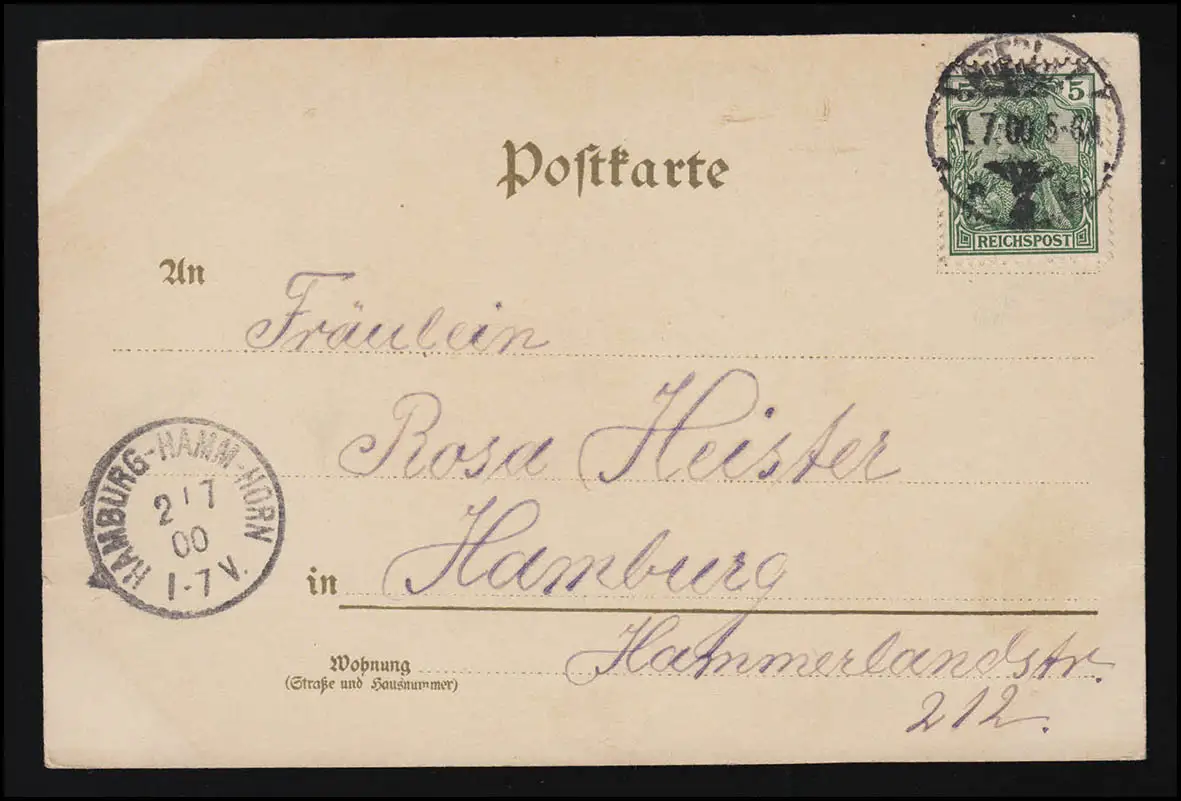 5 5
-1.7.00 5-6N
REICHSPOST
Postkarte
An
Fräulein
Rosa Heister
in Hamburg
Wohnung
(Straße und Hausnummer)
Hammerlandstr.
212.
HAMBURG-HAMM-HORN
2 7
00
1-7 V.